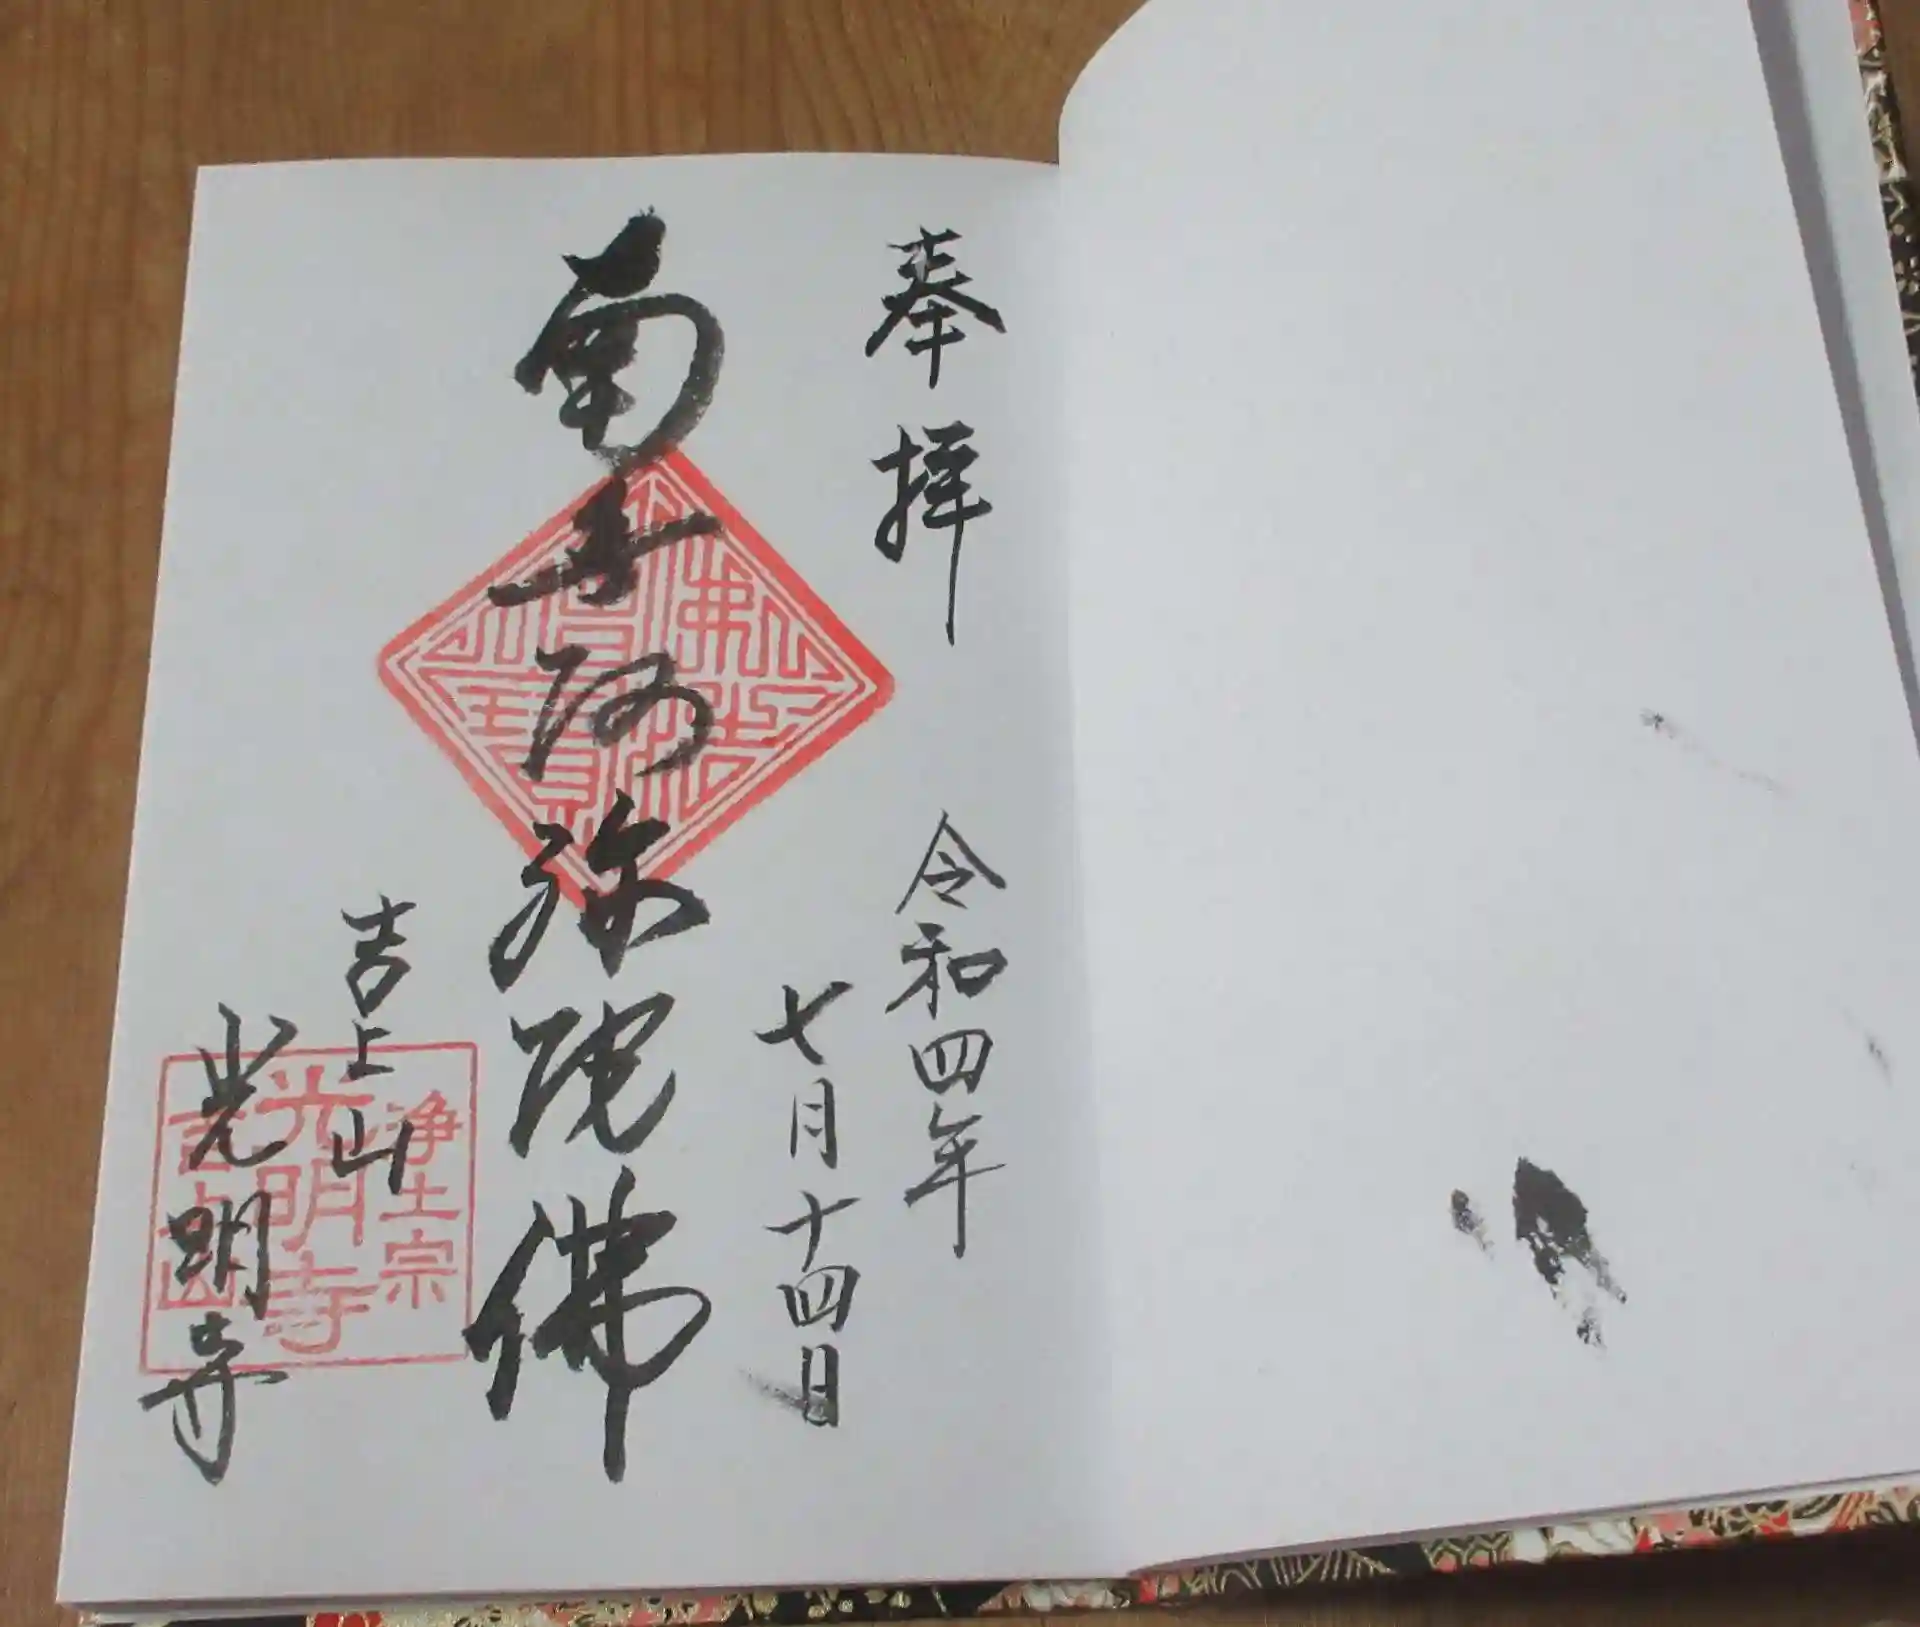 奉拝
令和四年
七月十四日
南無阿弥陀佛
吉上山
光明寺
浄土宗
光明寺